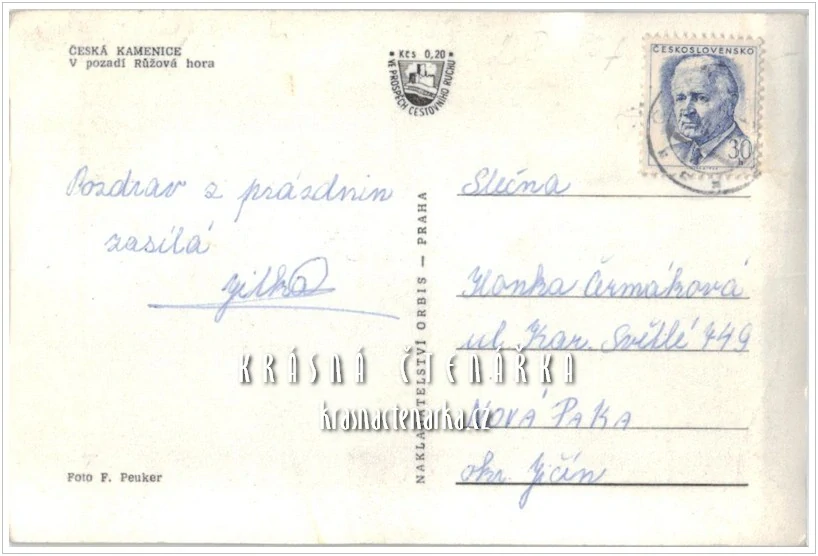 ČESKÁ KAMENICE
V pozadí Růžová hora
Kčs 0,20
VE PROSPĚCH CESTOVNÍHO RUCHU
ČESKOSLOVENSKO
30
Pozdrav z prázdnin
zasílá
Jitka
NAKLADATELSTVÍ ORBIS — PRAHA
Slečna
Ilonka Čermáková
ul. Kar. Světlé 449
NOVÁ PAKA
okr. Jičín
KRÁSNÁ ČTENÁŘKA
krasnactenarka.cz
Foto F. Peuker